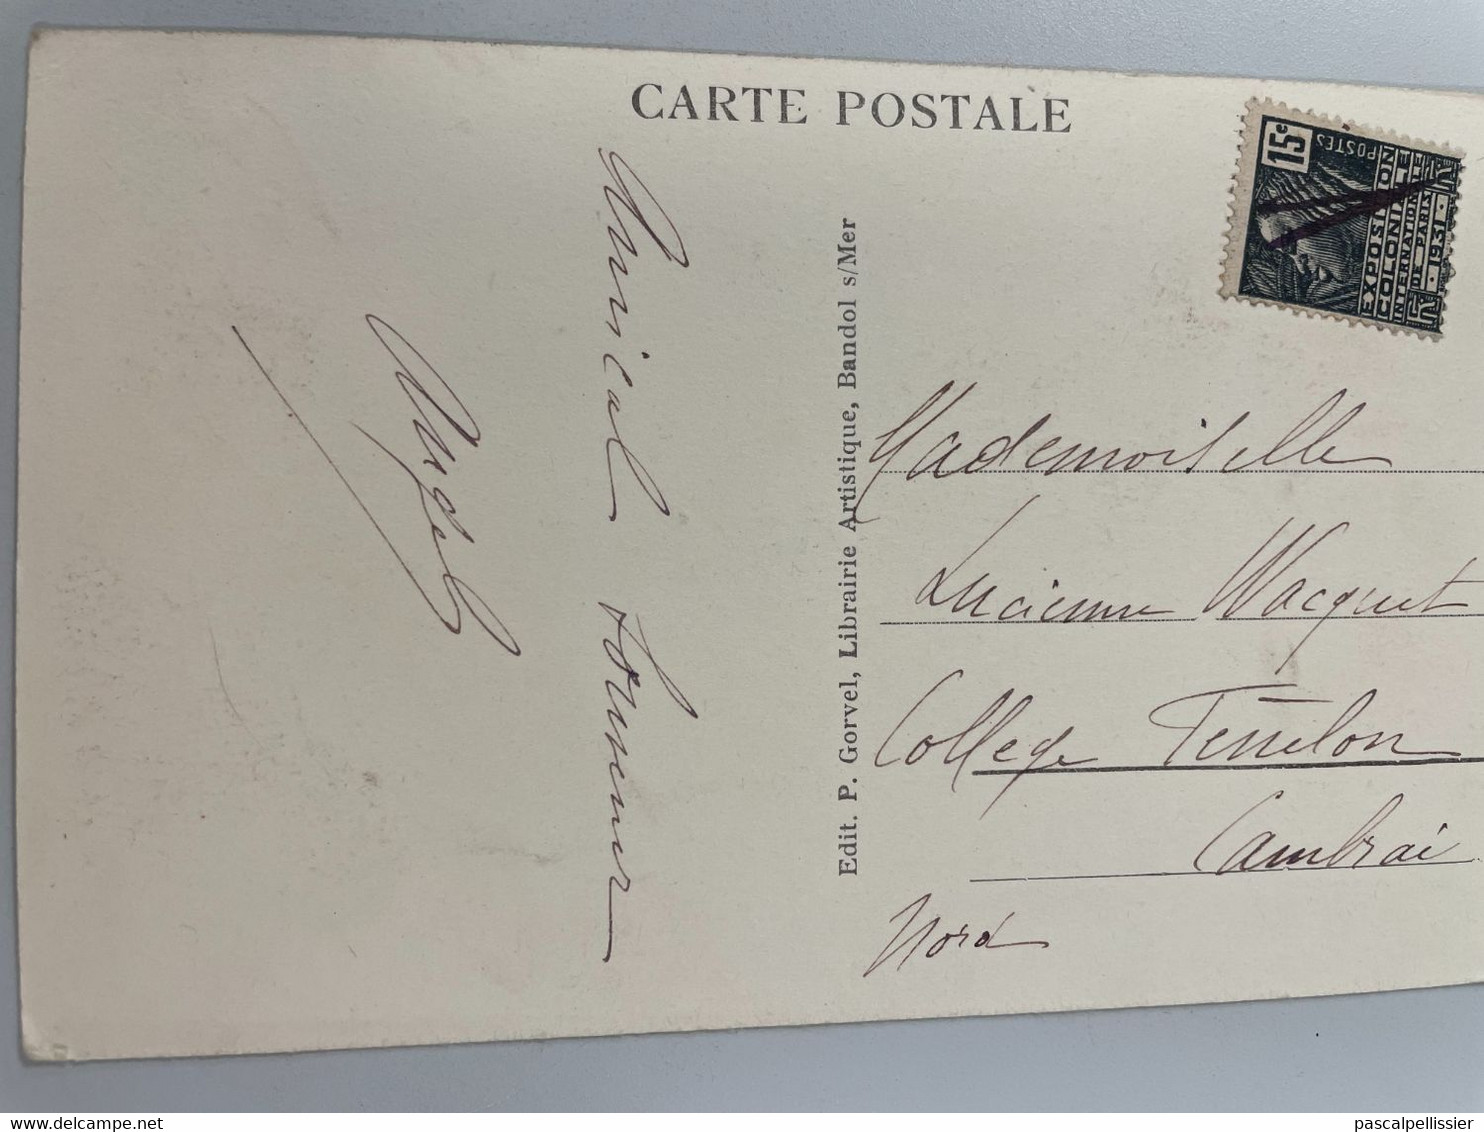 CARTE POSTALE
15c
POSTES
EXPOSITION
COLONIALE
INTERNATIONALE
DE PARIS
1931
RF
Amical souvenir
Edit. P. Gorvel, Librairie Artistique, Bandol s/Mer
Mademoiselle
Lucienne Wacquet
College Fénelon
Cambrai
Nord
delcampe.net
pascalpellissier